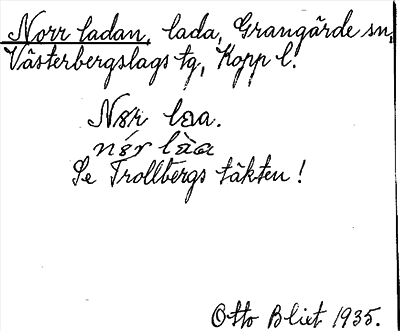 Norr ladan, lada, Grangärde sn,
Västerbergslags tg, Kopp l.
Nør laa.
nór làa
Se Trollbergs täkten!
Otto Bliet 1935.